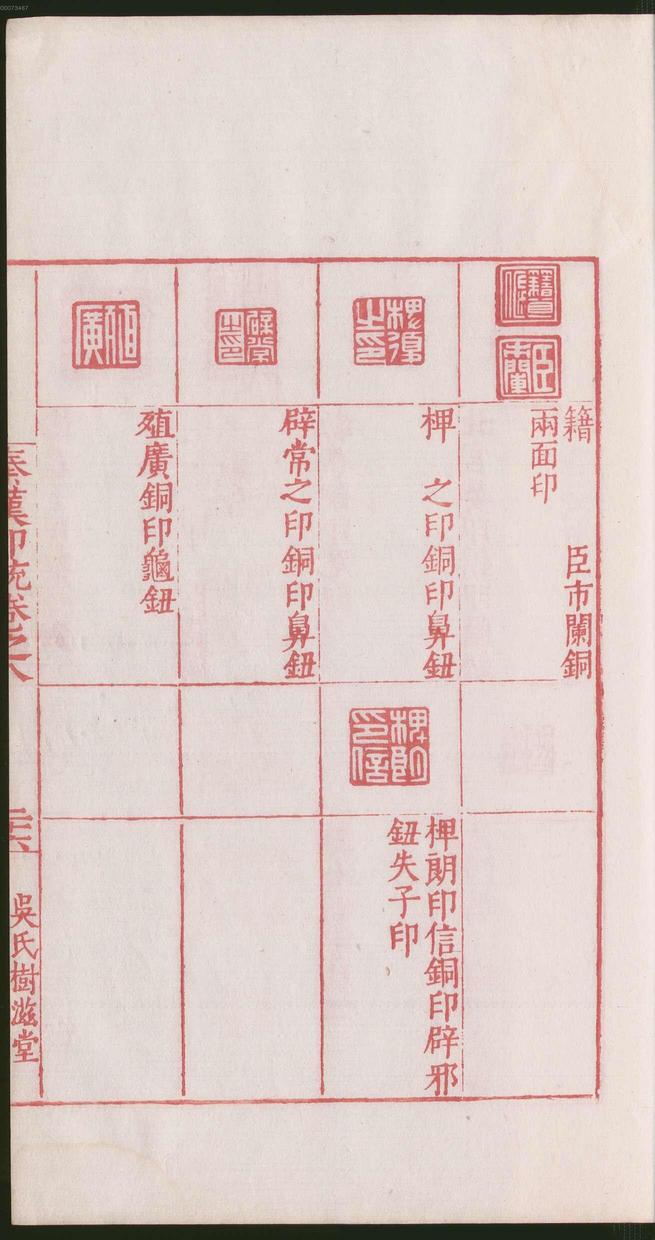 00073467
籍　　　臣市闌銅
兩面印
椑　之印銅印鼻鈕
椑朗印信銅印辟邪
鈕失子印
辟常之印銅印鼻鈕
殖廣銅印龜鈕
秦漢印統卷之六
二十六
吳氏樹滋堂